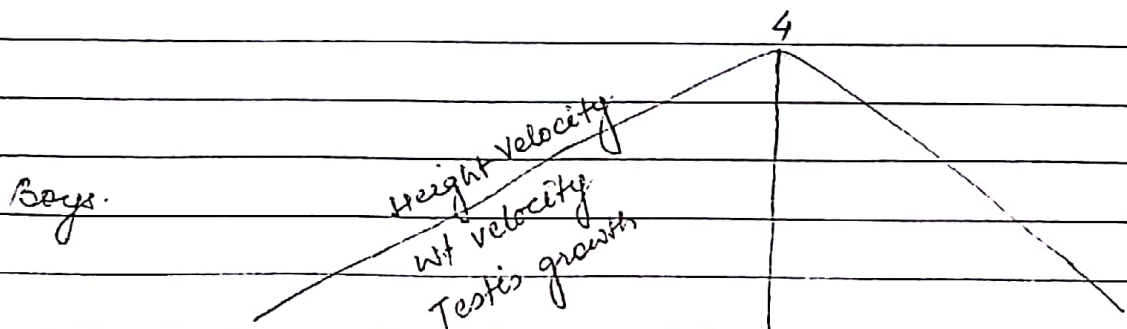 4
Height Velocity
Boys.
Wt velocity
Testis growth